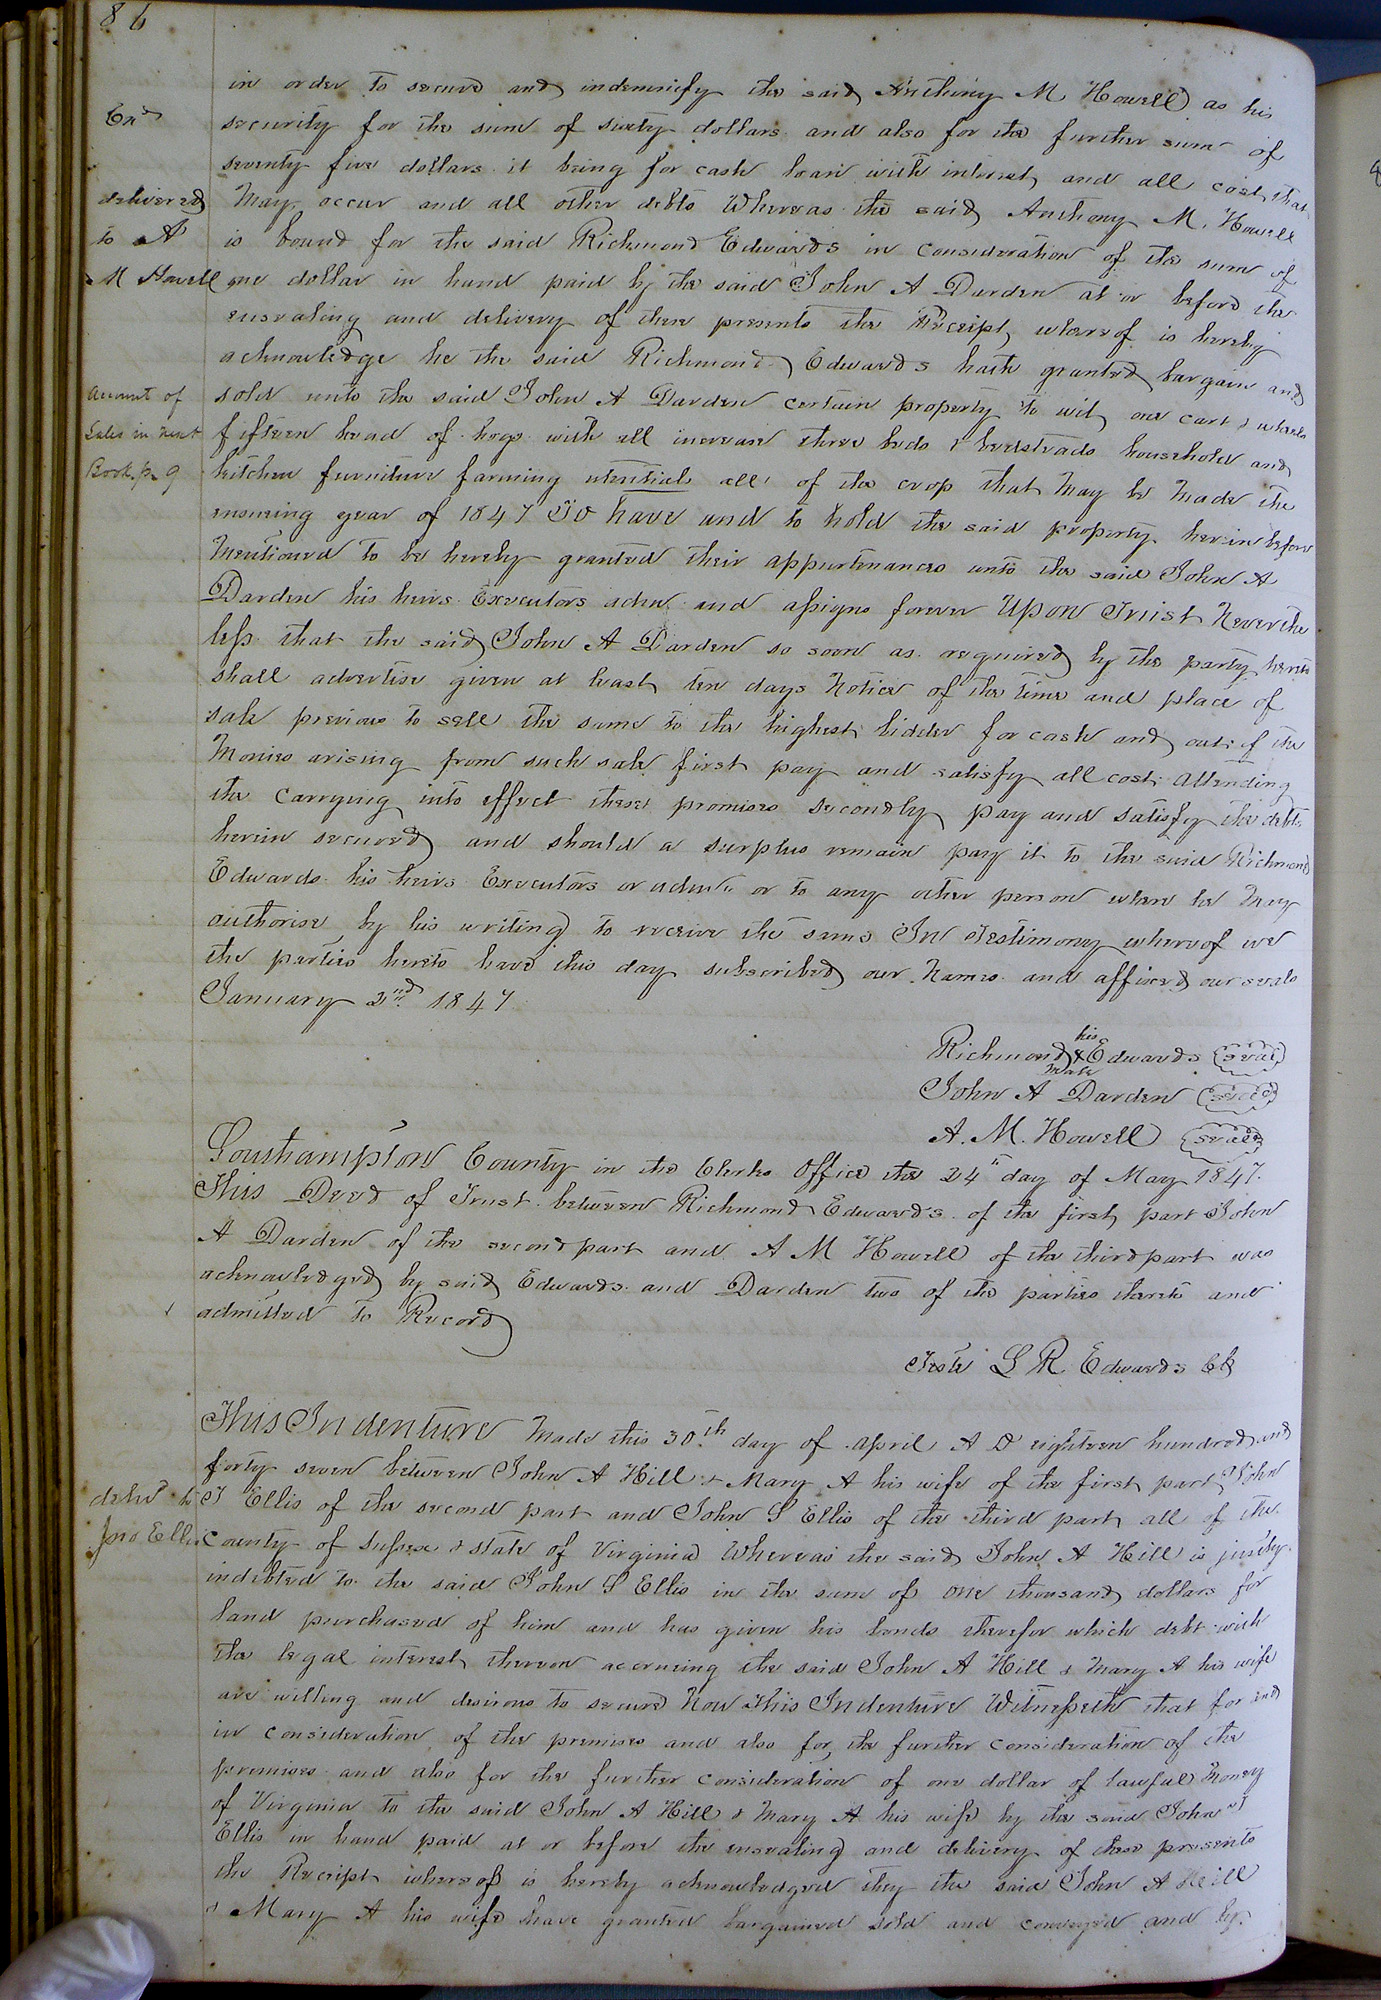 86
in order to secure and indemnify the said Anthony M Howell as his
Exd
security for the sum of sixty dollars and also for the further sum of
seventy five dollars it being for cash loan with interest and all cost that
delivered
may occur and all other debts Whereas the said Anthony M. Howell
to A
is bound for the said Richmond Edwards in consideration of the sum of
M Howell
one dollar in hand paid by the said John A Darden at or before the
ensealing and delivery of these presents the Receipt whereof is hereby
acknowledge he the said Richmond Edwards hath granted bargain and
Amount of
sold unto the said John A Darden certain property to wit one cart & wheels
Sales in next
fifteen head of hogs with all increase three beds & bedsteads household and
Book p 9
kitchen furniture farming utentials all of the crop that may be made the
ensuing year of 1847 To have and to hold the said property herein before
mentioned to be hereby granted their appurtenances unto the said John A
Darden his heirs Executors adm and assigns forever Upon Trust Neverthe
less that the said John A Darden so soon as required by the party hereto
shall advertise given at least ten days notice of the time and place of
sale previous to sell the same to the highest bidder for cash and out of the
monies arising from such sale first pay and satisfy all cost attending
the carrying into effect these promises secondly pay and satisfy the debts
herein secured and should a surplus remain pay it to the said Richmond
Edwards his heirs Executors or adm or to any other person when he may
authorise by his writing to receive the same In Testimony whereof we
the parties hereto have this day subscribed our names and affixed our seals
January 2nd 1847
his
Richmond X Edwards seal
mark
John A Darden seal
A. M. Howell seal
Southampton County in the Clerks Office the 24th day of May 1847.
This Deed of Trust between Richmond Edwards of the first part John
A Darden of the second part and A M Howell of the third part was
acknowledged by said Edwards and Darden two of the parties thereto and
admitted to Record
Teste L R Edwards Clk
This Indenture made this 30th day of April A D eighteen hundred and
forty seven between John A Hill & Mary A his wife of the first part John
deld to
T Ellis of the second part and John S Ellis of the third part all of the
Jno Ellis
County of Sussex & state of Virginia Whereas the said John A Hill is justly
indebted to the said John S Ellis in the sum of one thousand dollars for
land purchased of him and has given his bonds therefor which debt with
the legal interest thereon accruing the said John A Hill & Mary A his wife
are willing and desirous to secure Now This Indenture Witnesseth that for and
in consideration of the premises and also for the further consideration of the
premises and also for the further consideration of one dollar of lawful money
of Virginia to the said John A Hill & Mary A his wife by the said John T
Ellis in hand paid at or before the ensealing and delivery of these presents
the Receipt whereof is hereby acknowledged they the said John A Hill
& Mary A his wife have granted bargained sold and conveyed and by